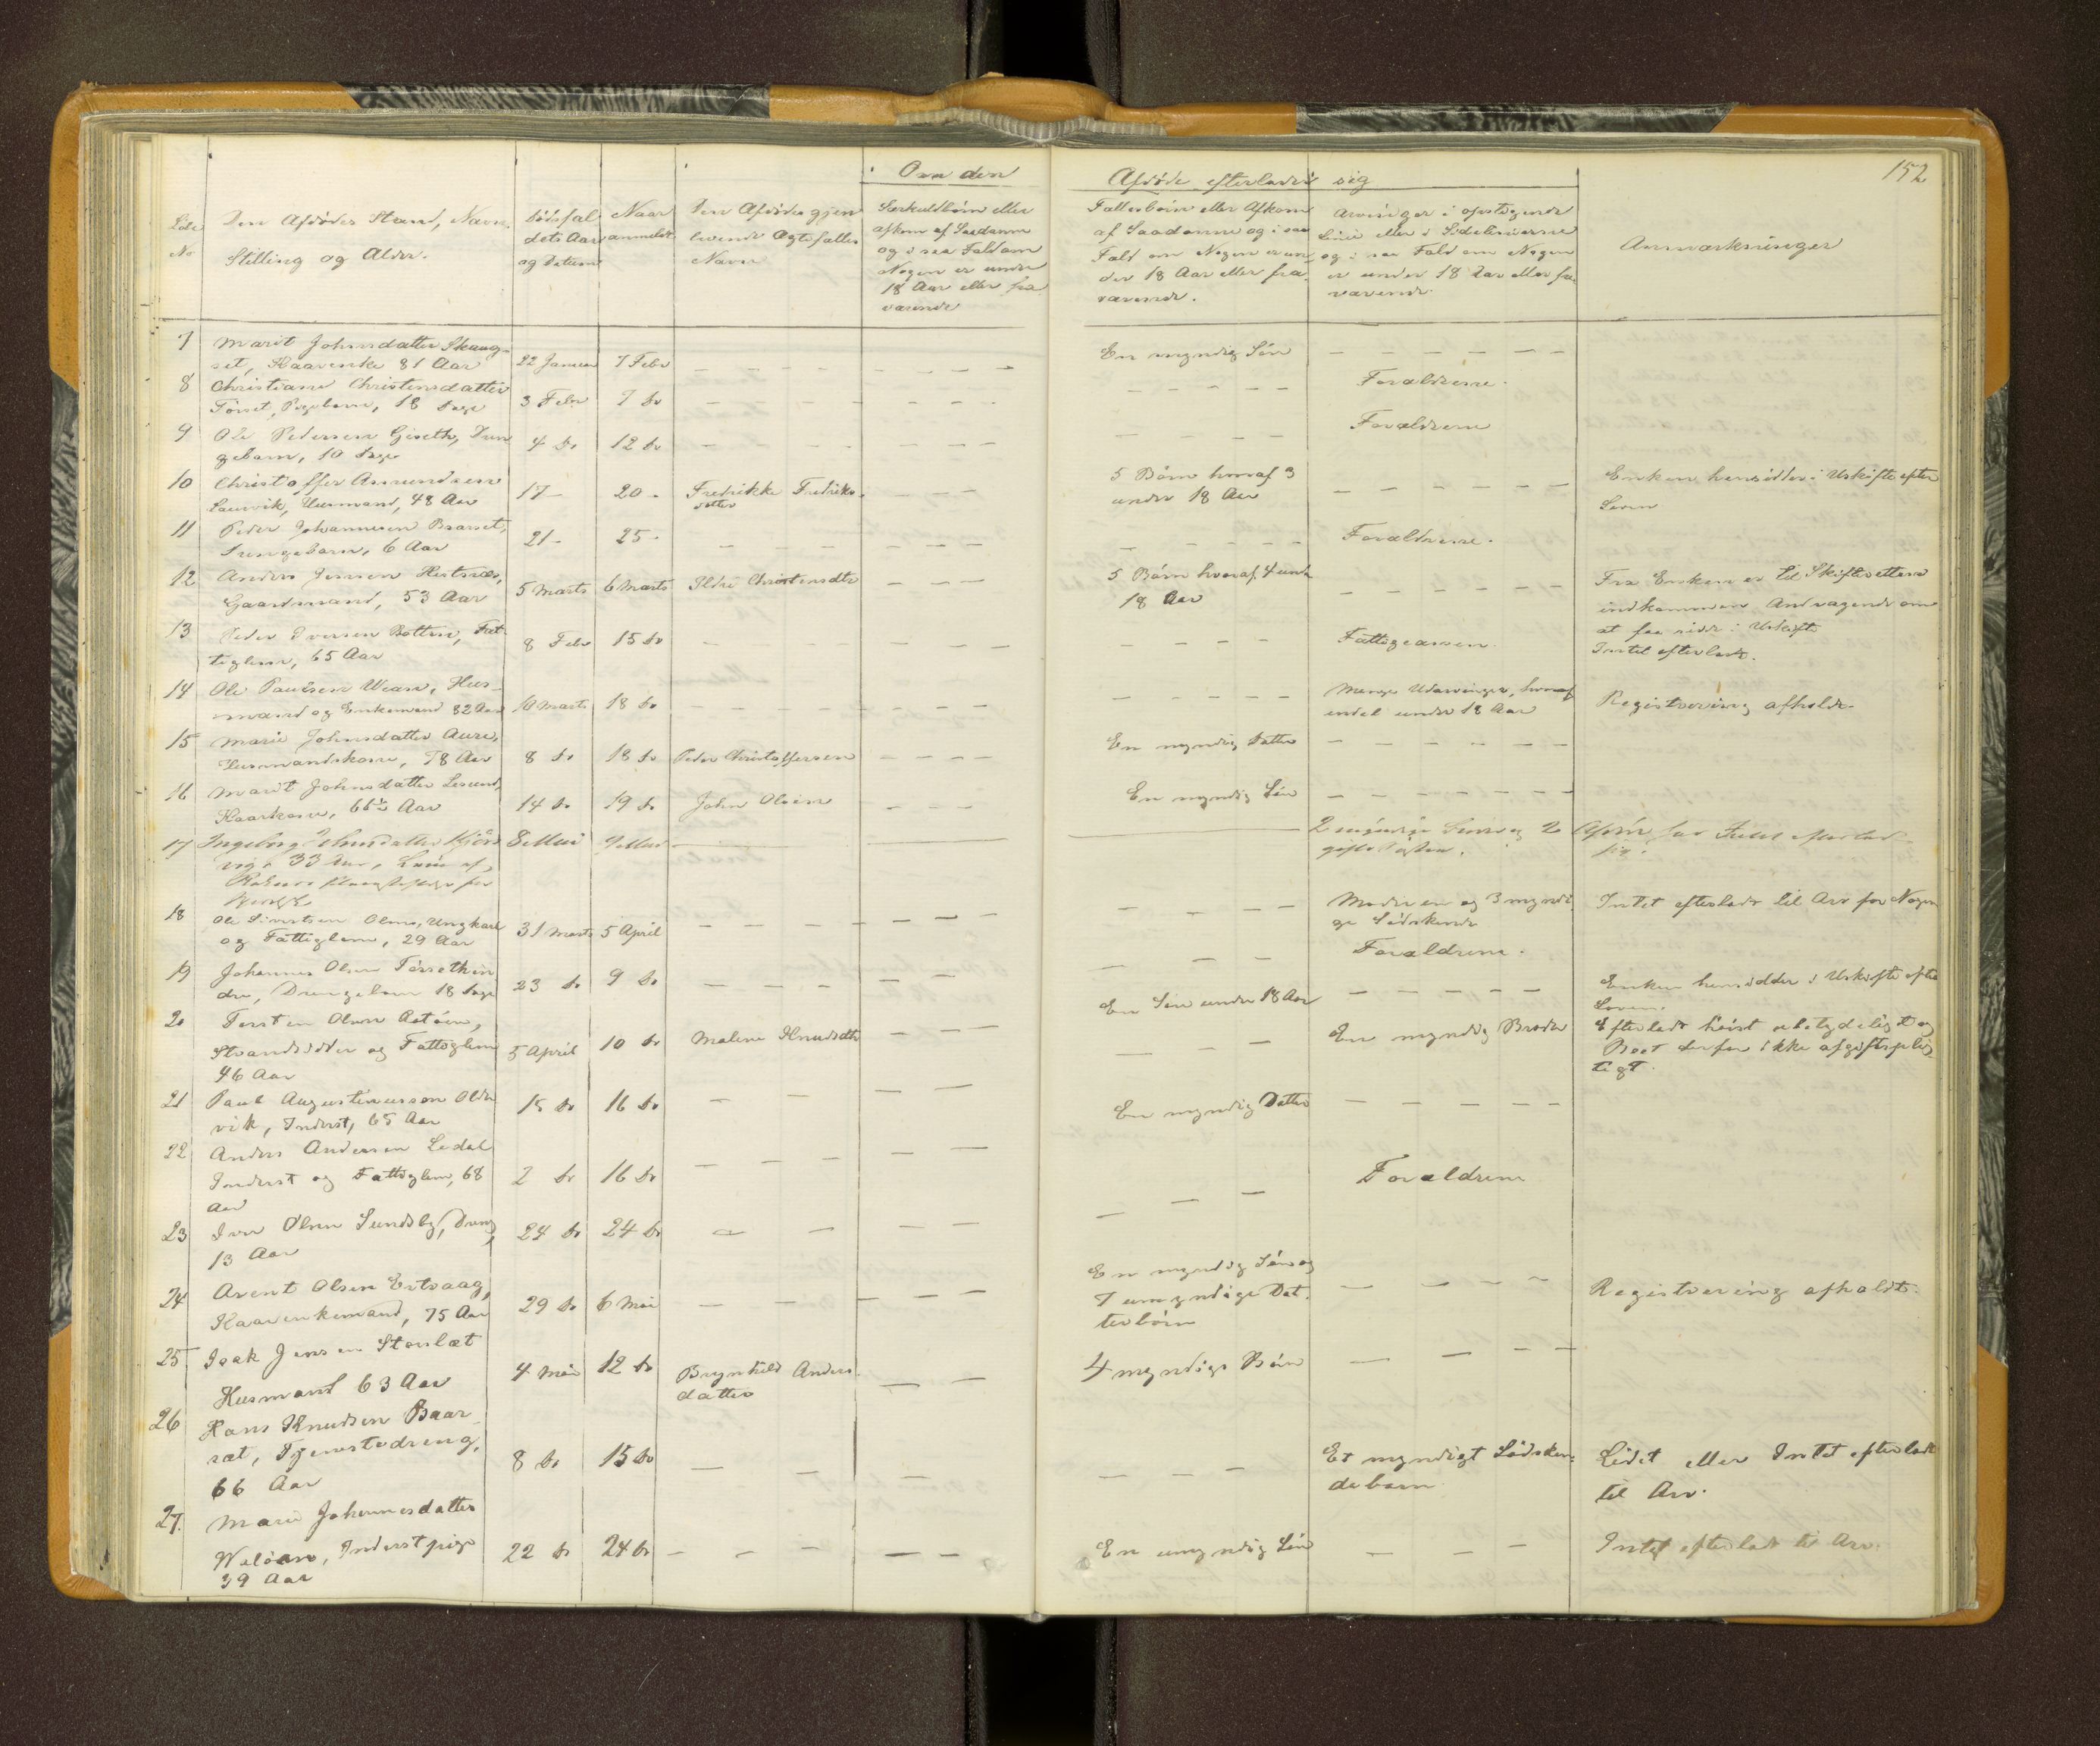 152
Om den
Afdøde efterlader sig
Løbe
No
Den Afdødes Stand, Navn,
Stilling og Alder.
Dødsfal
dets Aar
og Datum
Naar
anmeldt
Den Afdødes gjen
levende Ægtefælles
Navn
Særkuldbørn eller
afkom af Saadanne
og i saa Fald om
Nogen er under
18 Aar eller fra
værende
Fællesbørn eller Afkom
af Saadanne og i saa
Fald om Nogen er un
der 18 Aar eller fra
værende.
Arvinger i opstigende
Linie eller i Sidelinierne
og i saa Fald om Nogen
er under 18 Aar eller fra
værende.
Anmærkninger
7 Marit Johnsdatter Skaug
set, Kaarenke 81 Aar 22 Januar 7 Febr En myndig Søn
8 Christiane Christensdatter
Tørset, Pigebarn, 18 Dage 3 Febr 7 do Forældrene.
9 Ole Pedersen Gjseth, Dren
gebarn, 10 Dage 4 do 12 do Forældrene
10 Christoffer Amundsen
Laurvik, Husmand, 48 Aar 17 - 20 - Fredrikke Fredriks
datter 5 Børn hvoraf 3
under 18 Aar Enken hensidder i Uskifte efter
Loven
11 Peder Johannesen Baarset,
Drengebarn, 6 Aar 21 - 25 - Forældrene.
12 Anders Jensen Hestnæs,
Gaardmand, 53 Aar 5 Marts 6 Marts Ildri Christensdtr 5 Børn hvoraf 4 und
18 Aar Fra Enken er til Skifteretten
indkommen Andragende om
at faa sidde i Uskifte
13 Peder Iversen Botten, Fat
tiglem, 65 Aar 8 Febr 15 do Fattigcassen Intet efterladt.
14 Ole Paulsen Wean, Hus
mand og Enkemand 82 Aar 10 Marts 18 do Mange Udarvinger, hvoraf
endel under 18 Aar Registrering afholdt
15 Marie Johnsdatter Aure,
Husmandskone, 78 Aar 8 do 18 do Peder Christoffersen En myndig Datter
16 Marit Johnsdatter Lesund,
Kaarkone, 66½ Aar 14 do 19 do John Olsen En myndig Søn
17 Ingeborg Johnsdatter Kjørs
vig, 33 Aar, 8 Mai 9 Mai
18 Ole Sivertsen Olmo, Ungkarl
og Fattiglem, 29 Aar 31 Marts 5 April Moderen og 3 myndi
ge Sødskende Intet efterladt til Arv for Nogen
19 Johannes Olsen Tørsethin
dre, Drengebarn 18 Dage 23 do 9 do Forældrene.
20 Torsten Olsen Astøen,
Strandsidder og Fattiglem
46 Aar 5 April 10 do Malene Knudsdtr En Søn under 18 Aar Enken hensidder i Uskifte efter
Loven.
21 Paul Augustinusson Older
vik, Inderst, 65 Aar 15 do 16 do En myndig Broder Efterladt høist ubetydeligt og
Boet derfor ikke afgiftspligt
tigt.
22 Anders Andersen Ledal
Inderst og Fattiglem, 68
Aar 2 do 16 do En myndig Datter
23 Iver Olsen Sundsby, Dreng
13 Aar 24 do 24 do Forældrene
24 Arent Olsen Ertvaag,
Kaarenkemand, 75 Aar 29 do 6 Mai En myndig Søn og
7 umyndige Dat
terbørn Registrering afholdt.
25 Isak Jensen Storslæt
Husmand 63 Aar 4 Mai 12 do Brynhild Anders
datter 4 myndige Børn
26 Hans Knudsen Baar
sæt, Tjenestedreng,
66 Aar 8 do 15 do Et myndigt Sødsken
debarn Lidet eller Intet efterladt
til Arv.
27. Marie Johannesdatter
Weløen, Inderstpige
39 Aar 22 do 24 do En umyndig Søn Intet efterladt til Arv.